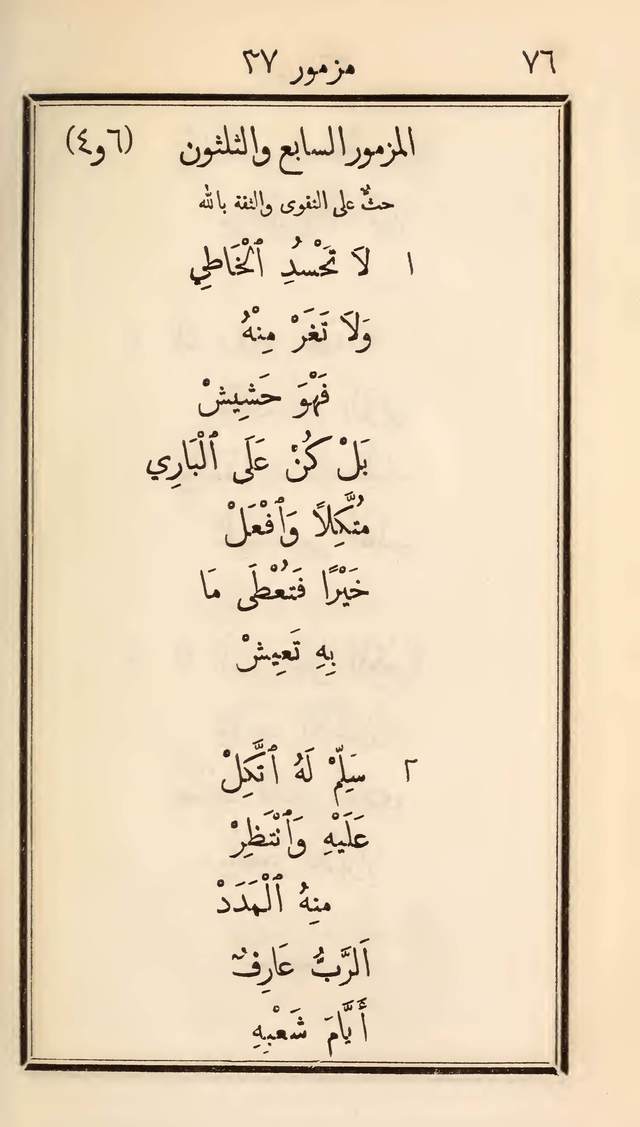 ٧٦ مزمور ٣٧
المزمور السابع والثلثون (٦ و ٤)
حثٌّ على التقوى والثقة بالله
١ لَا تَحْسُدِ ٱلْخَاطِي
وَلَا تَغَرْ مِنْهُ
فَهْوَ حَشِيشْ
بَلْ كُنْ عَلَى ٱلْبَارِي
مُتَّكِلًا وَٱفْعَلْ
خَيْرًا فَتُعْطَى مَا
بِهِ تَعِيشْ
٢ سَلِّمْ لَهُ ٱتَّكِلْ
عَلَيْهِ وَٱنْتَظِرْ
مِنهُ ٱلْمَدَدْ
اَلرَّبُّ عَارِفٌ
أَيَّامَ شَعْبِهِ